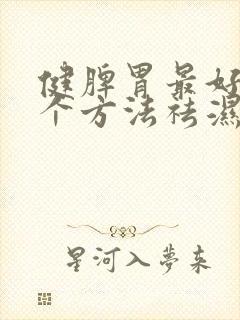 健脾胃最好
个方法祛濕
星河入夢来